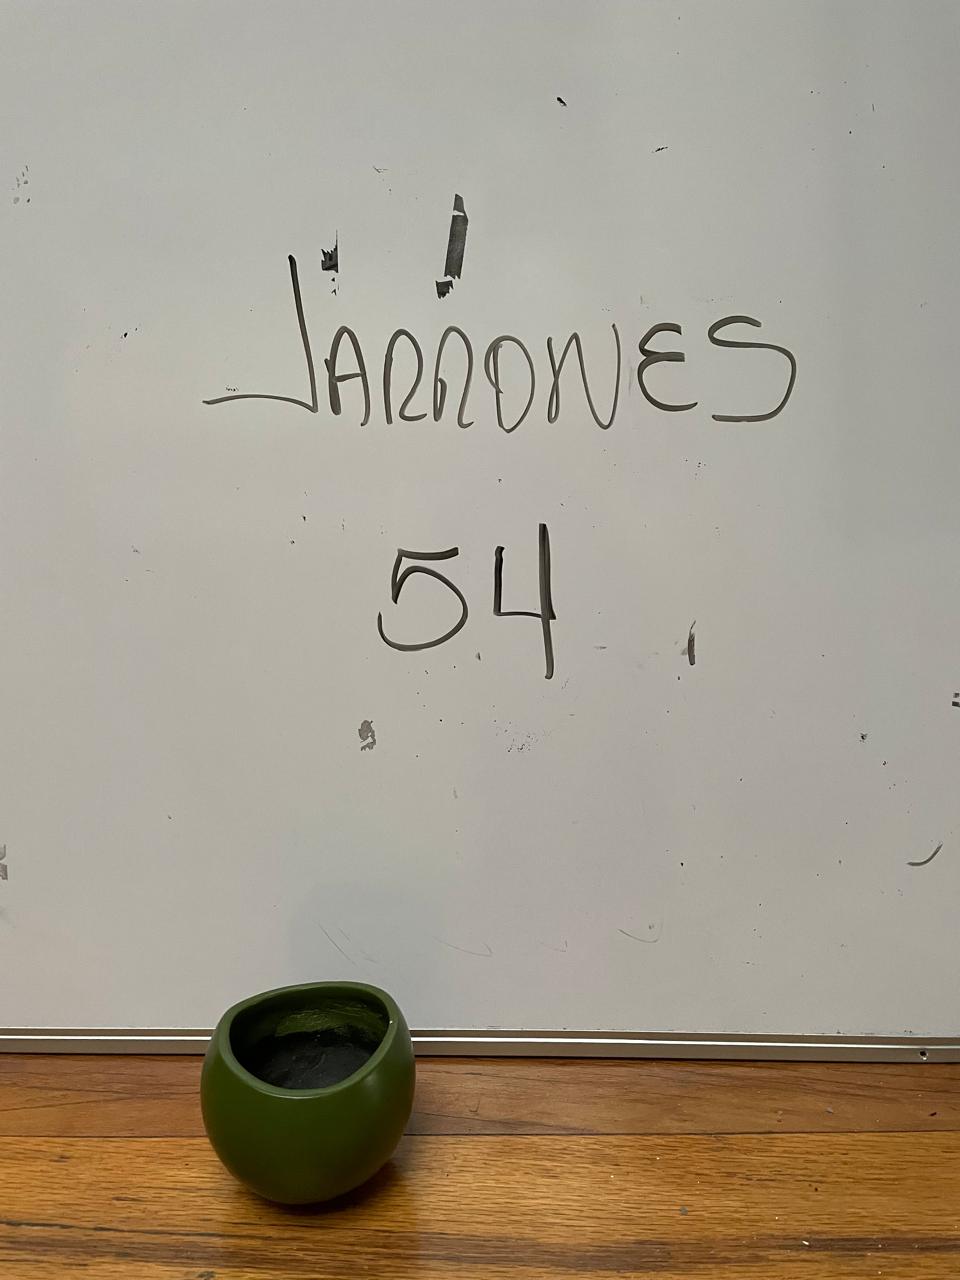 JARRONES
54